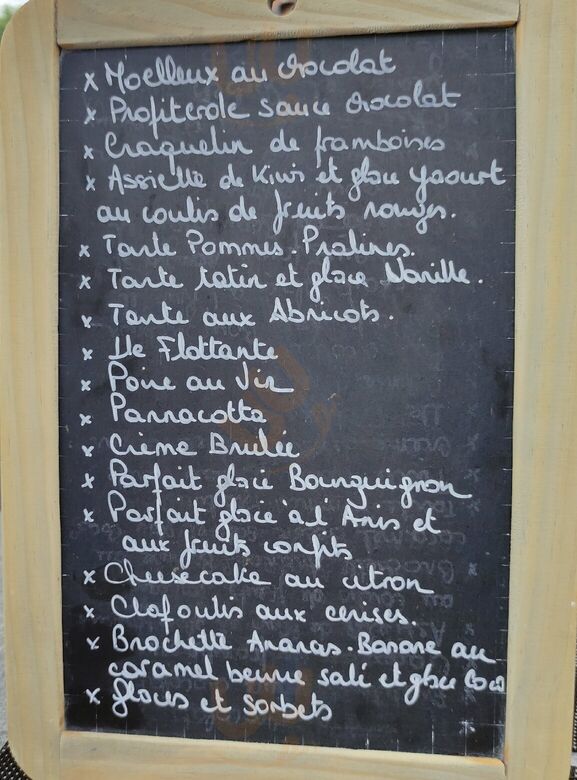 x Moelleux au chocolat
x Profiterole sauce chocolat
x Craquelin de framboises
x Assiette de Kiwi et glace yaourt
au coulis de fruits rouges.
x Tarte Pommes. Pralines.
x Tarte tatin et glace Vanille.
x Tarte aux Abricots.
x Ile Flottante
x Poire au Vin
x Pannacotta
x Crème Brulée
x Parfait glacé Bourguignon
x Parfait glacé à l'Anis et
aux fruits confits
x Cheesecake au citron
x Clafoutis aux cerises.
x Brochette Ananas. Banane au
caramel beurre salé et glace Coco
x glaces et sorbets